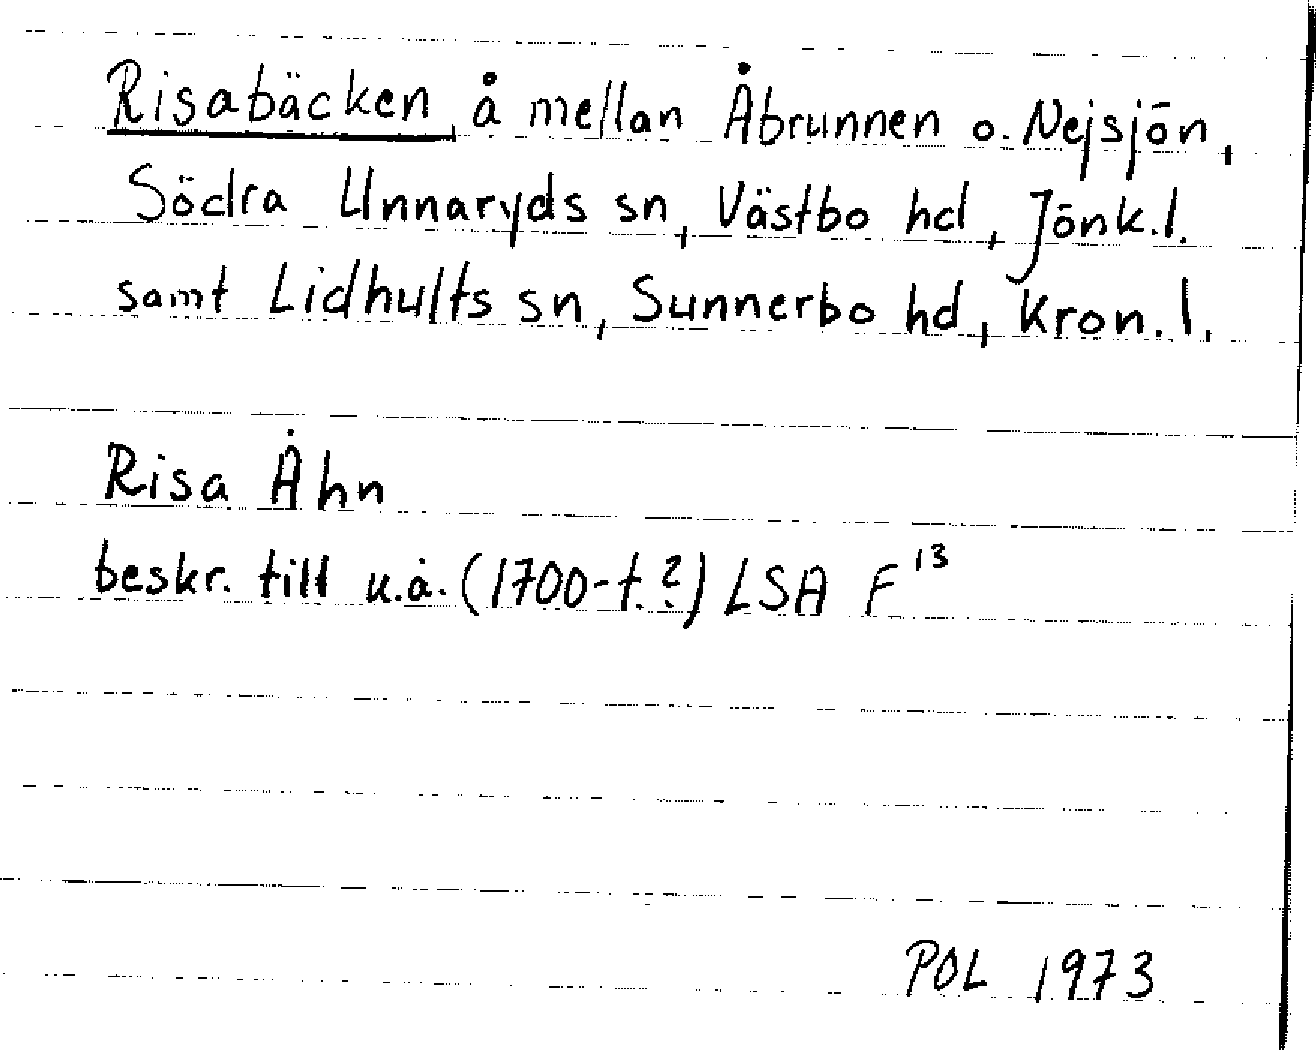 Risabäcken, å mellan Åbrunnen o. Nejsjön,
Södra Unnaryds sn, Västbo hd, Jönk.l.
samt Lidhults sn, Sunnerbo hd, Kron.l.
Risa Åhn
beskr. till u.å. (1700-t.?) LSA F¹³
POL 1973